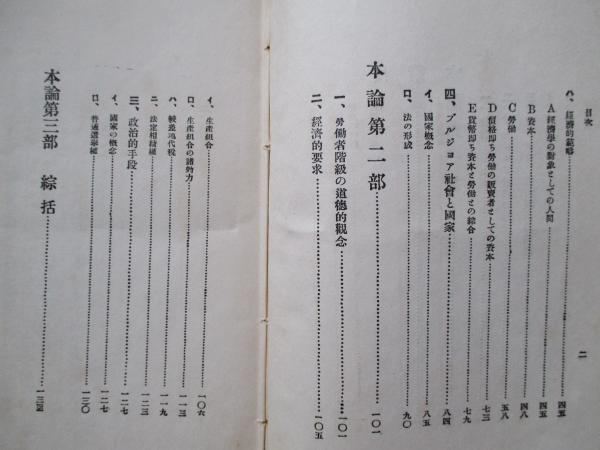 目次
二
ハ、經濟的範疇……四五
A 經濟學の對象としての人間……四五
B 資本……四八
C 勞働……五八
D 價格即ち勞働の販賣者としての資本……七三
E 貨幣即ち資本と勞働との綜合……七九
四、ブルジョア社會と國家……八四
イ、國家概念……八五
ロ、法の形成……九〇
本論第二部……一〇一
一、勞働者階級の道德的觀念……一〇一
二、經濟的要求……一〇五
イ、生産組合……一〇六
ロ、生産組合の諸効力……一一三
ハ、較差地代稅……一一九
ニ、法定相續權……一二三
三、政治的手段……一二七
イ、國家の概念……一二七
ロ、普通選擧權……一三〇
本論第三部 綜括……一三四